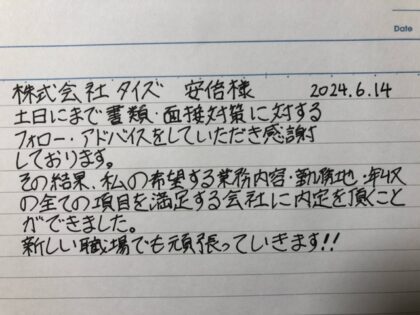 Date
株式会社タイズ 安倍様 2024.6.14
土日にまで書類・面接対策に対する
フォロー・アドバイスをしていただき感謝
しております。
その結果、私の希望する業務内容・勤務地・年収
の全ての項目を満足する会社に内定を頂くこと
ができました。
新しい職場でも頑張っていきます!!